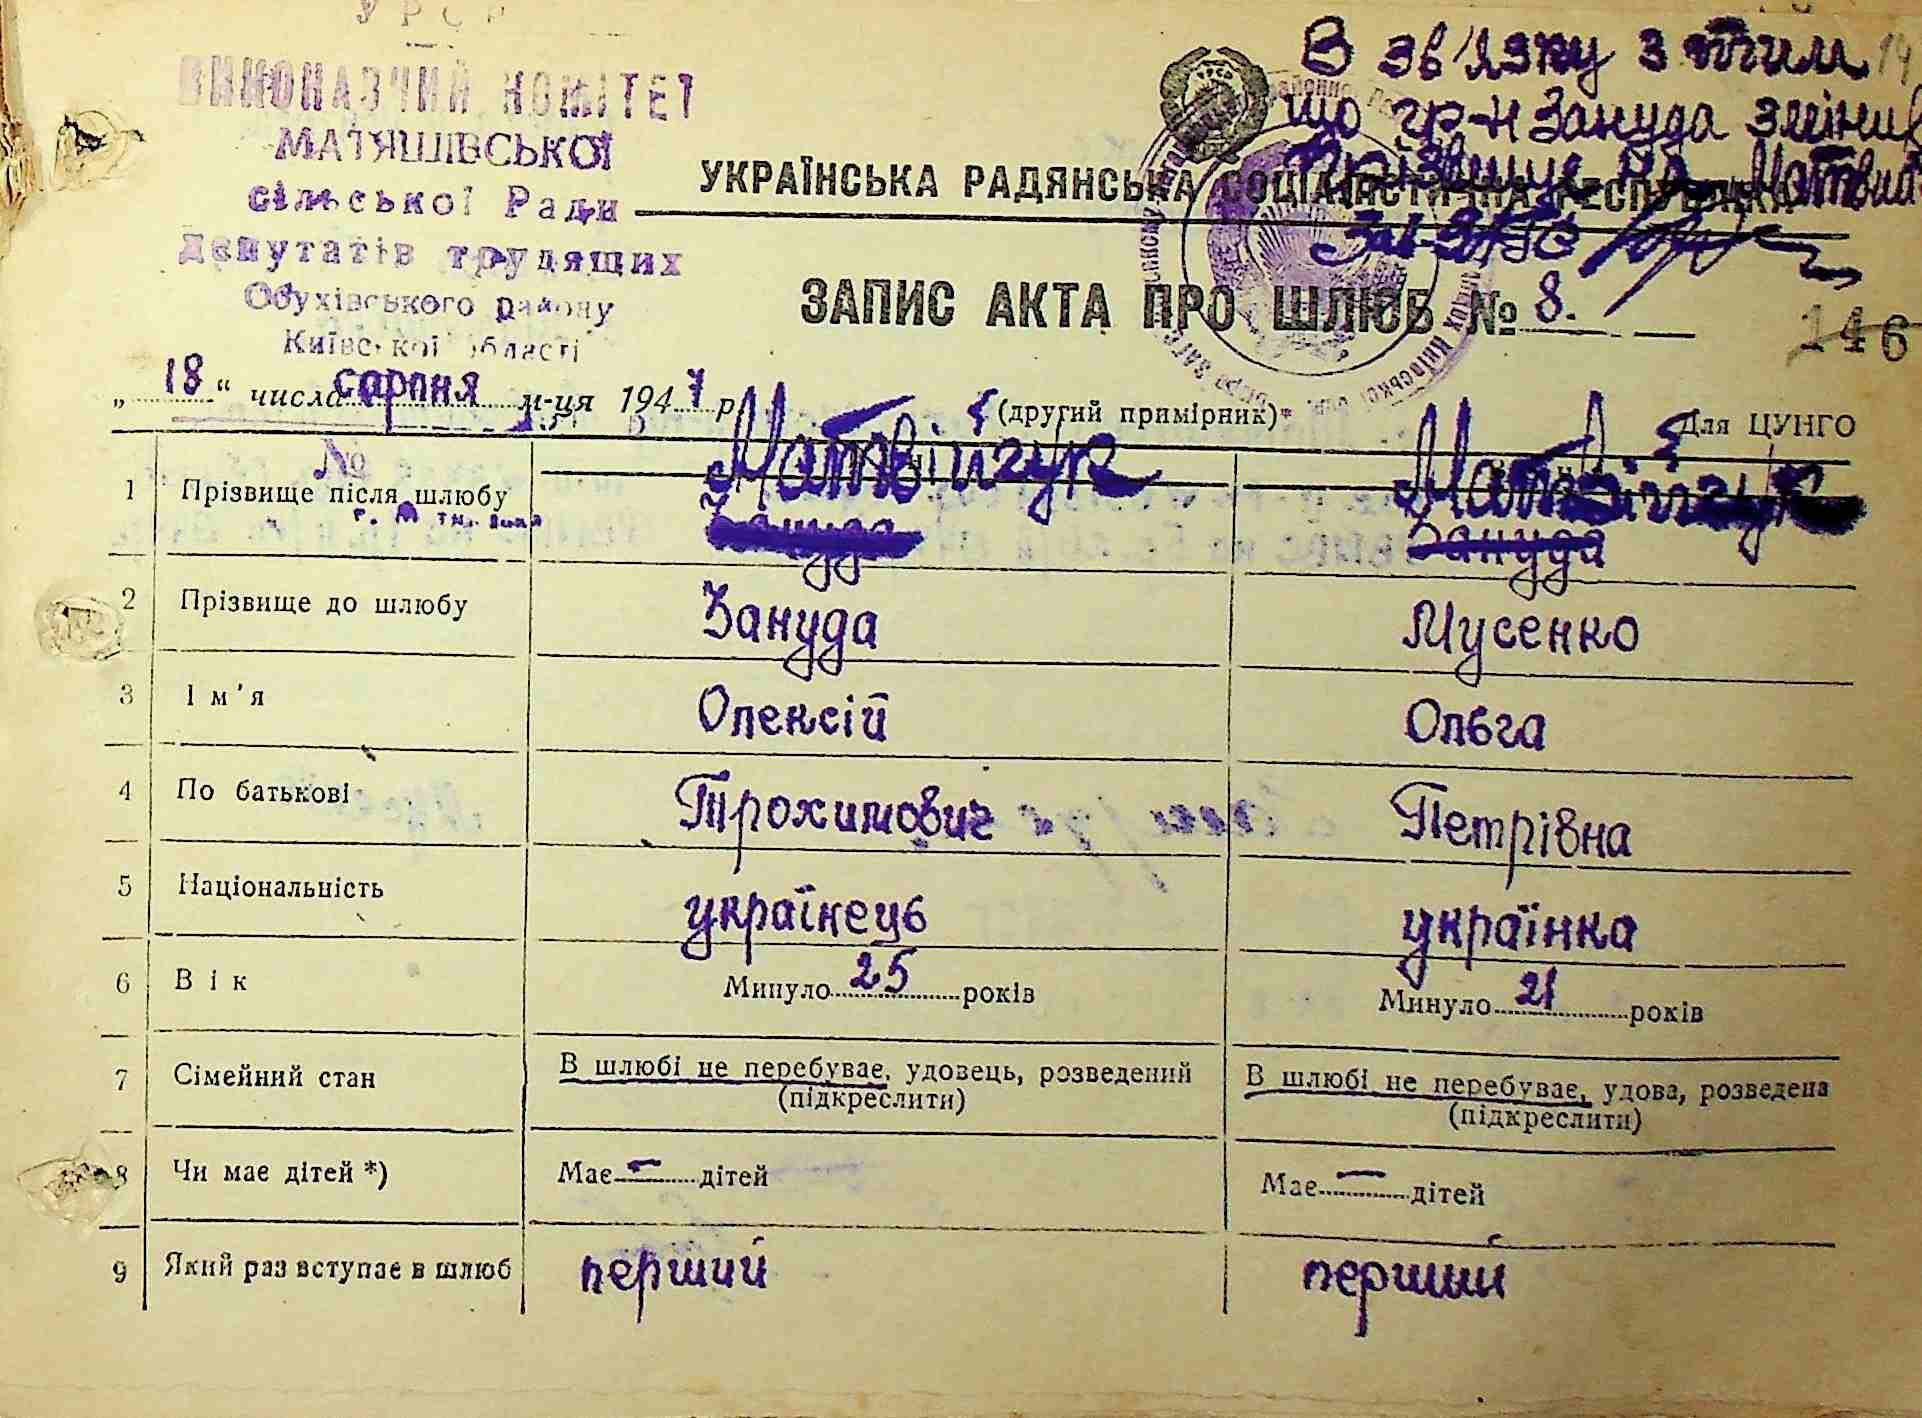 УРСР
ВИКОНАВЧИЙ КОМІТЕТ
МАТЯШІВСЬКОЇ
сільської Ради
депутатів трудящих
Обухівського району
Київської області
В зв'язку з тим
що гр-н Зануда змінив
прізвище на
УКРАЇНСЬКА РАДЯНСЬКА СОЦІАЛІСТИЧНА РЕСПУБЛІКА
ЗАПИС АКТА ПРО ШЛЮБ № 8.
146
„18“ числа серпня м-ця 1947 р. (другий примірник)* Для ЦУНГО
№
1 Прізвище після шлюбу Матвійчук Матвійчук
Зануда Зануда
2 Прізвище до шлюбу Зануда Мусенко
3 Ім'я Олексій Ольга
4 По батькові Трохимович Петрівна
5 Національність українець українка
6 Вік Минуло 25 років Минуло 21 років
7 Сімейний стан В шлюбі не перебуває, удовець, розведений В шлюбі не перебуває, удова, розведена
(підкреслити) (підкреслити)
8 Чи має дітей *) Має — дітей Має — дітей
9 Який раз вступає в шлюб перший перший